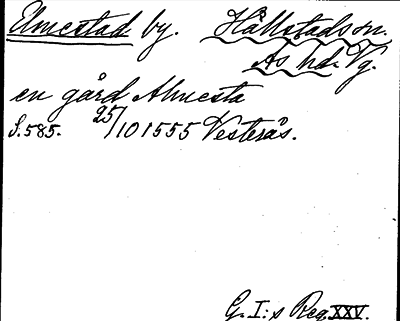 Elmestad by. Hällstads sn.
Ås hd. Vg.
en gård Almesta
S. 585. 25/10 1555 Vesterås.
G. I:s Reg. XXV.